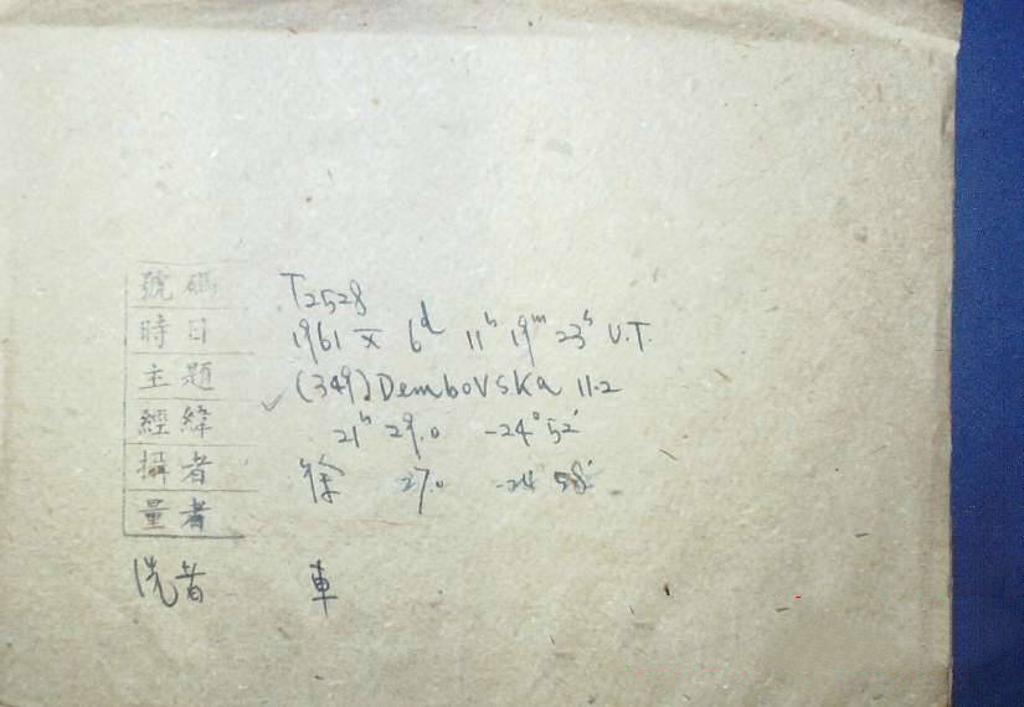 號碼 T2528
時日 1961 X 6d 11h 19m 23s U.T.
主題 (349) Dembovska 11.2
經緯 21h 29.0 -24°52'
攝者 徐 27.0 -24 58'
量者
洗者 車